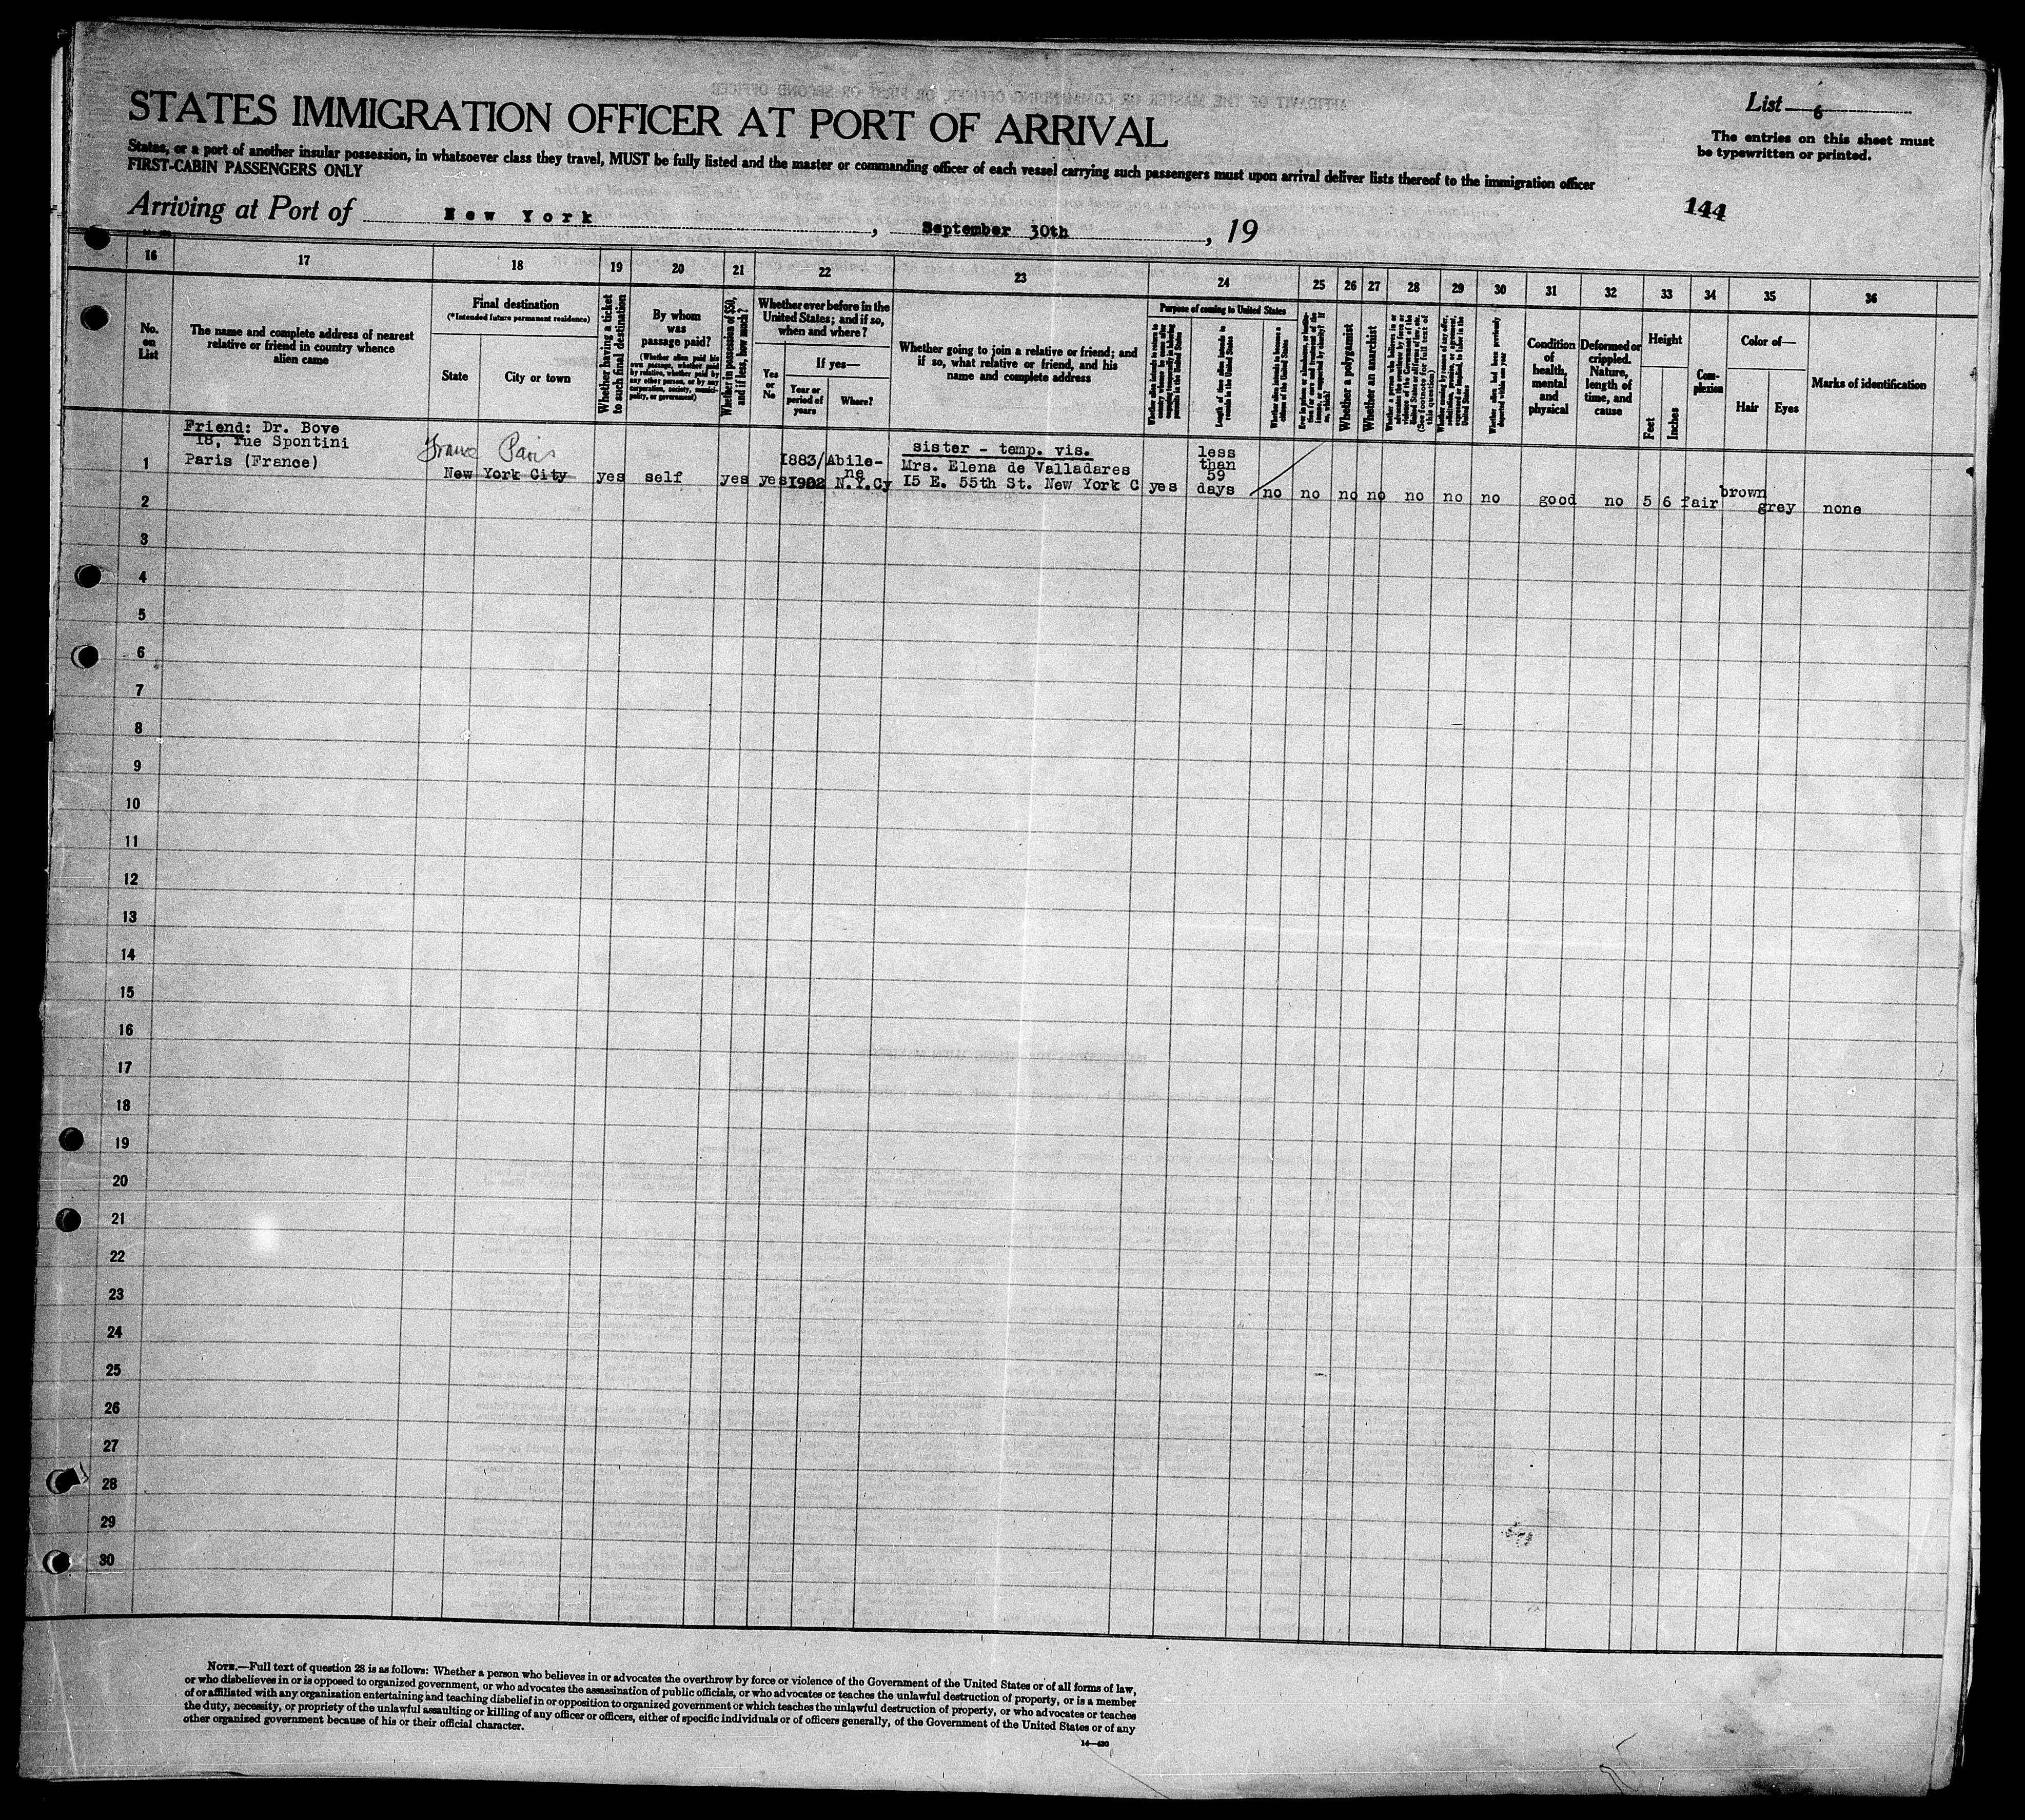 List 6
STATES IMMIGRATION OFFICER AT PORT OF ARRIVAL
The entries on this sheet must
be typewritten or printed.
States, or a port of another insular possession, in whatsoever class they travel, MUST be fully listed and the master or commanding officer of each vessel carrying such passengers must upon arrival deliver lists thereof to the immigration officer
FIRST-CABIN PASSENGERS ONLY
144
Arriving at Port of New York, September 30th, 19
16 17 18 19 20 21 22 23 24 25 26 27 28 29 30 31 32 33 34 35 36
No.
on
List
The name and complete address of nearest
relative or friend in country whence
alien came
Final destination
(*Intended future permanent residence)
State
City or town
Whether having a ticket
to such final destination
By whom
was
passage paid?
(Whether alien paid his
own passage, whether paid
by relative, whether paid by
any other person, or by any
corporation, society, munici-
pality, or government)
Whether in possession of $50,
and if less, how much?
Whether ever before in the
United States; and if so,
when and where?
Yes
or
No
If yes—
Year or
period of
years
Where?
Whether going to join a relative or friend; and
if so, what relative or friend, and his
name and complete address
Purpose of coming to United States
Length of time alien intends to
remain in the United States
Whether alien intends to become a
citizen of the United States
Whether a polygamist
Whether an anarchist
(See footnote for full text of
this question)
Whether alien had been previously
deported within one year
Condition
of
health,
mental
and
physical
Deformed or
crippled.
Nature,
length of
time, and
cause
Height
Feet
Inches
Com-
plexion
Color of—
Hair
Eyes
Marks of identification
Friend: Dr. Bove
18, rue Spontini
Paris (France)
France Paris
New York City
yes
self
yes
yes
1883/
1902
Abile-
ne
N.Y.Cy
sister - temp. vis.
Mrs. Elena de Valladares
15 E. 55th St. New York C
yes
less
than
59
days
no no no no no no no good no 5 6 fair brown grey none
1
2
3
4
5
6
7
8
9
10
11
12
13
14
15
16
17
18
19
20
21
22
23
24
25
26
27
28
29
30
NOTE.—Full text of question 28 is as follows: Whether a person who believes in or advocates the overthrow by force or violence of the Government of the United States or of all forms of law,
or who disbelieves in or is opposed to organized government, or who advocates the assassination of public officials, or who advocates or teaches the unlawful destruction of property, or is a member
of or affiliated with any organization entertaining and teaching disbelief in or opposition to organized government or which teaches the unlawful destruction of property, or who advocates or teaches
the duty, necessity, or propriety of the unlawful assaulting or killing of any officer or officers, either of specific individuals or of officers generally, of the Government of the United States or of any
other organized government because of his or their official character.